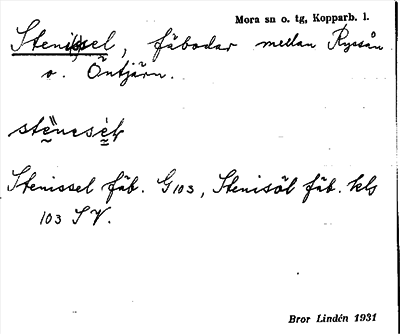 Mora sn o. tg, Kopparb. l.
Stenissel, fäbodar mellan Ryssån
o. Öntjärn.
Stenissel fäb. G103, Stenisöl fäb. kls
103 SV.
Bror Lindén 1931